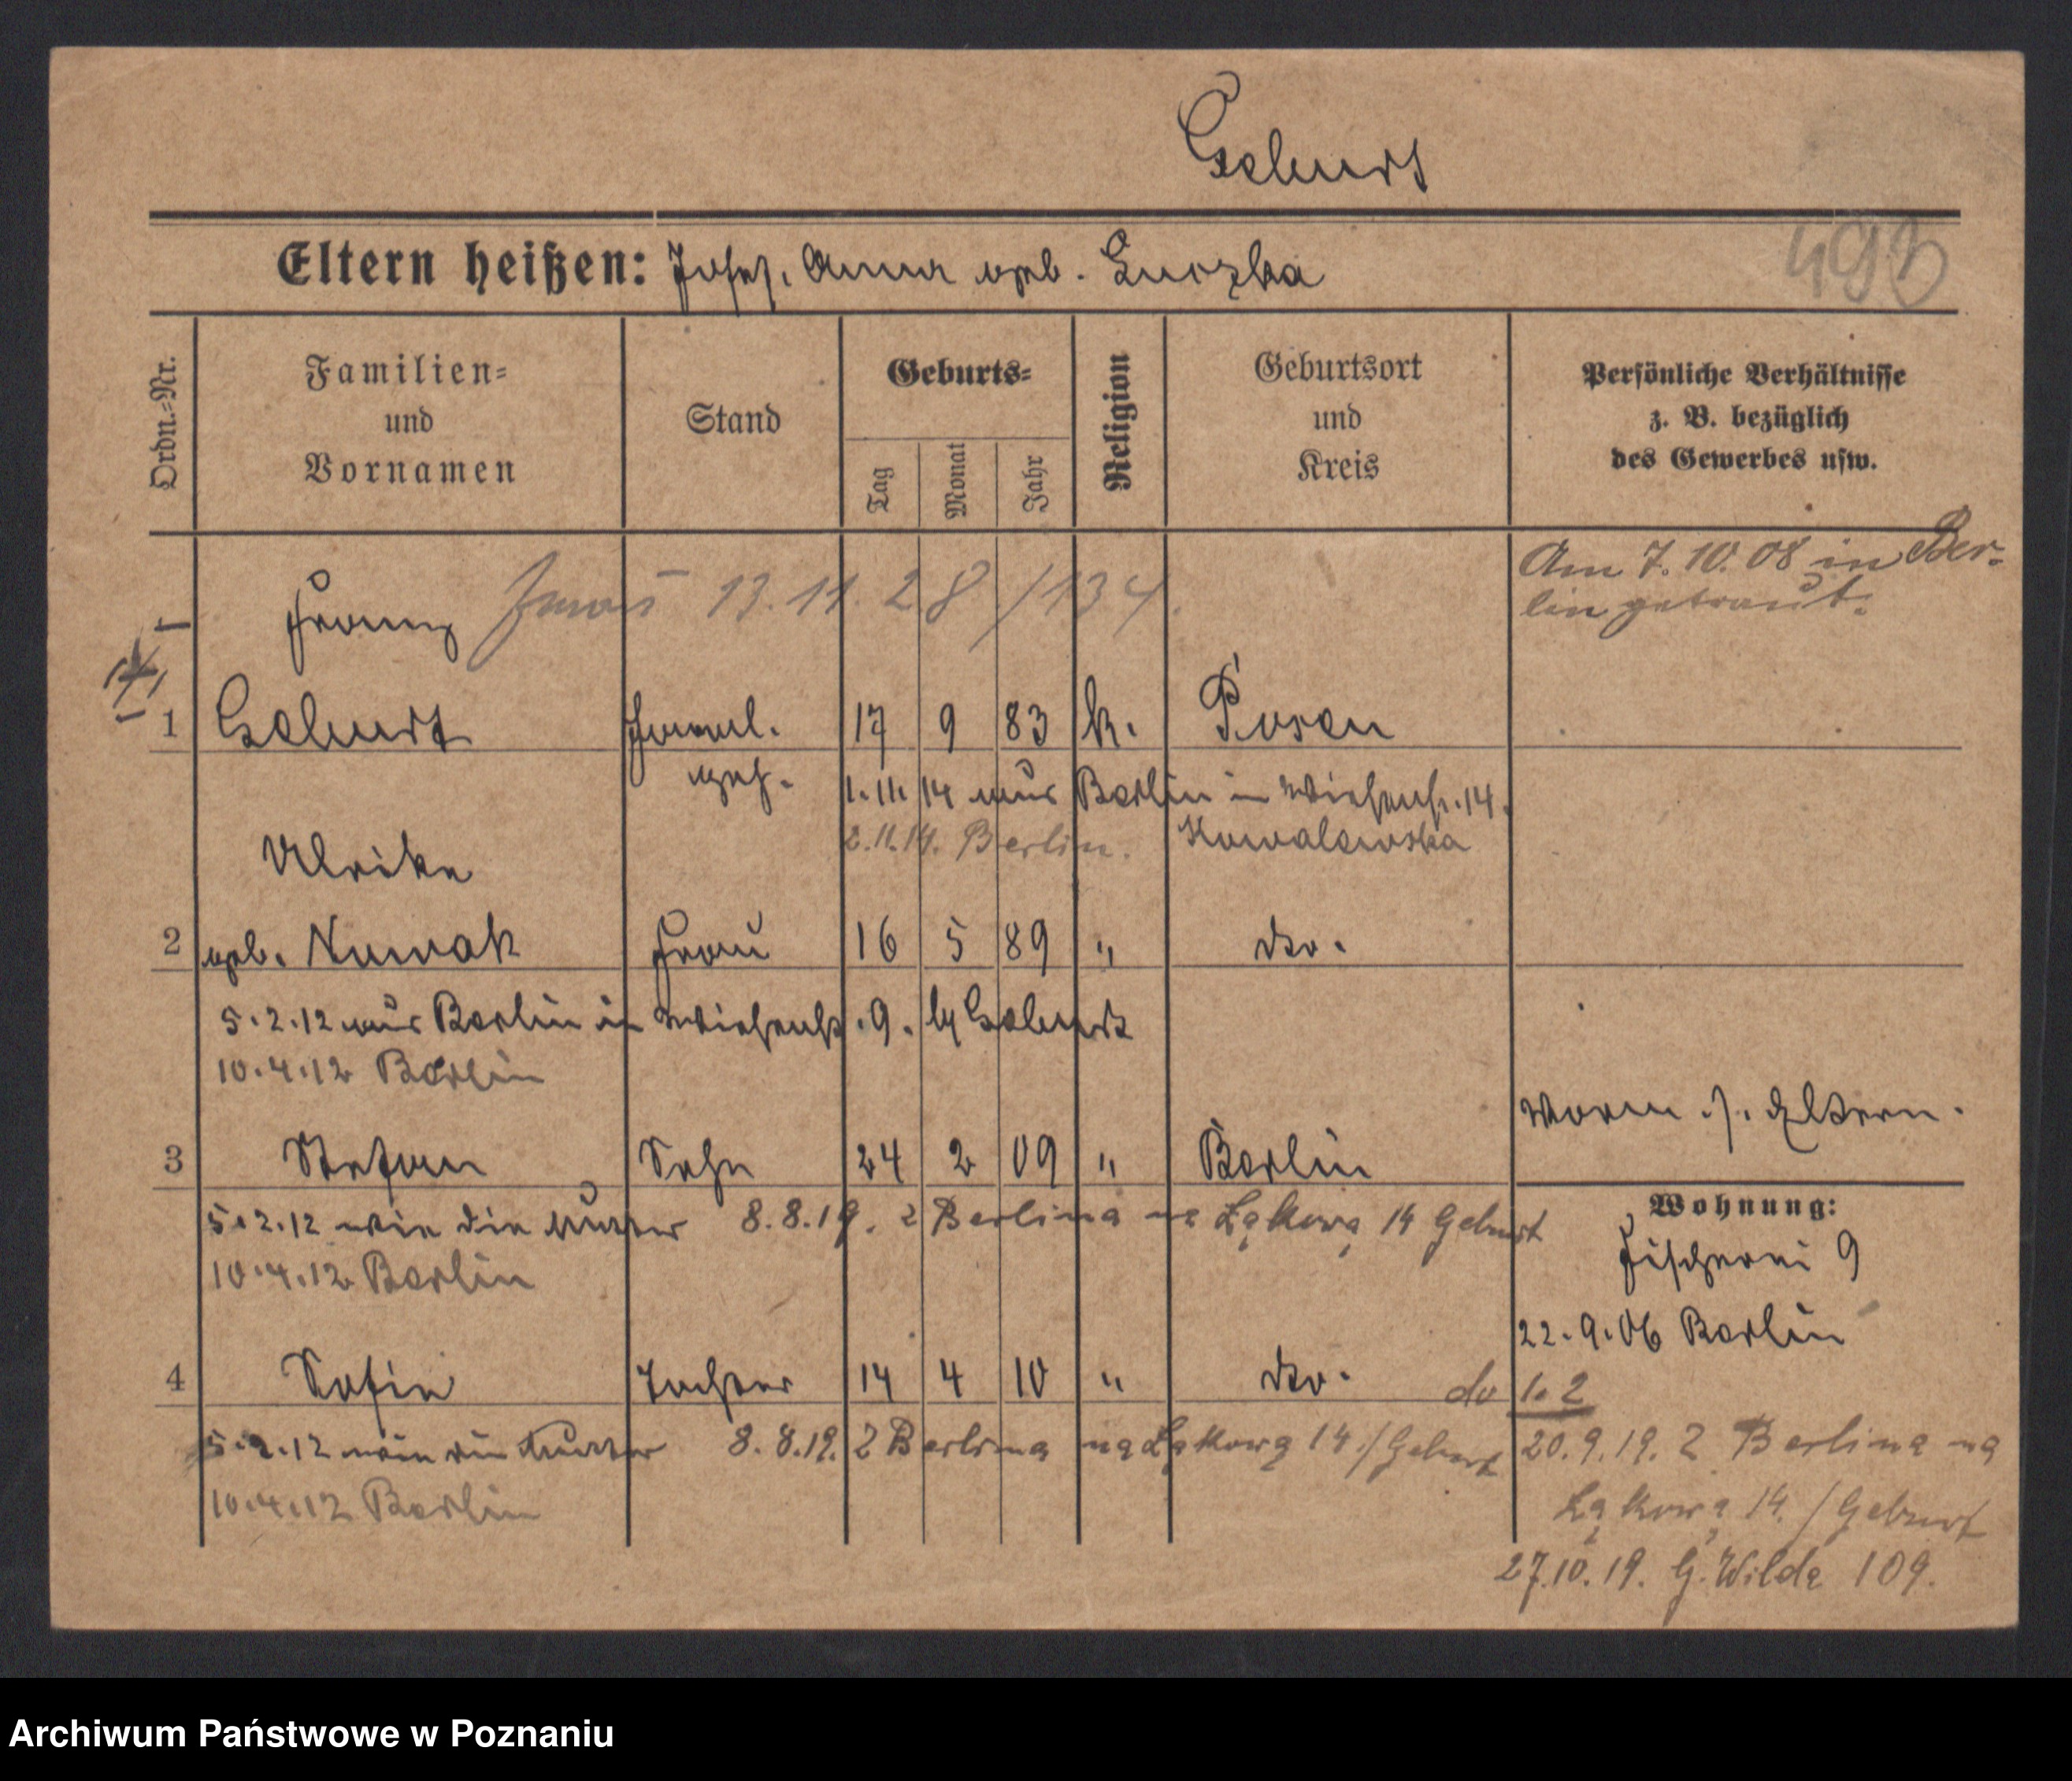 Geburt
Eltern heißen: Josef, Anna geb. Luczka
493
Ordn.-Nr.
Familien-
und
Vornamen
Stand
Geburts-
Tag
Monat
Jahr
Religion
Geburtsort
und
Kreis
Persönliche Verhältnisse
z. B. bezüglich
des Gewerbes usw.
Am 7.10.08 in Ber-
lin getraut.
Franz 13.11.28/134.
1 Geburt 17 9 83 k. Posen
1.11.14 aus Berlin in Wiesenstr. 14.
2.11.14. Berlin. Kowalewska
Ulrike
2 geb. Nowak Frau 16 5 89 " dto.
5.2.12 aus Berlin in Wiesenstr. 9. by Geburt
10.4.12 Berlin
Worm. s. Eltern.
3 Stefan Sohn 24 2 09 " Berlin
5.2.12 wie die Mutter 8.8.19. z Berlina na Łąkową 14 Geburt
10.4.12 Berlin
Wohnung:
Fischerei 9
22.9.06 Berlin
4 Sofie Tochter 14 4 10 " dto.
do 1.2
5.2.12 wie die Mutter 8.8.19. z Berlina na Łąkową 14./Geburt
10.4.12 Berlin
20.9.19. z Berlina na
Łąkową 14./Geburt
27.10.19. G. Wilda 109.
Archiwum Państwowe w Poznaniu